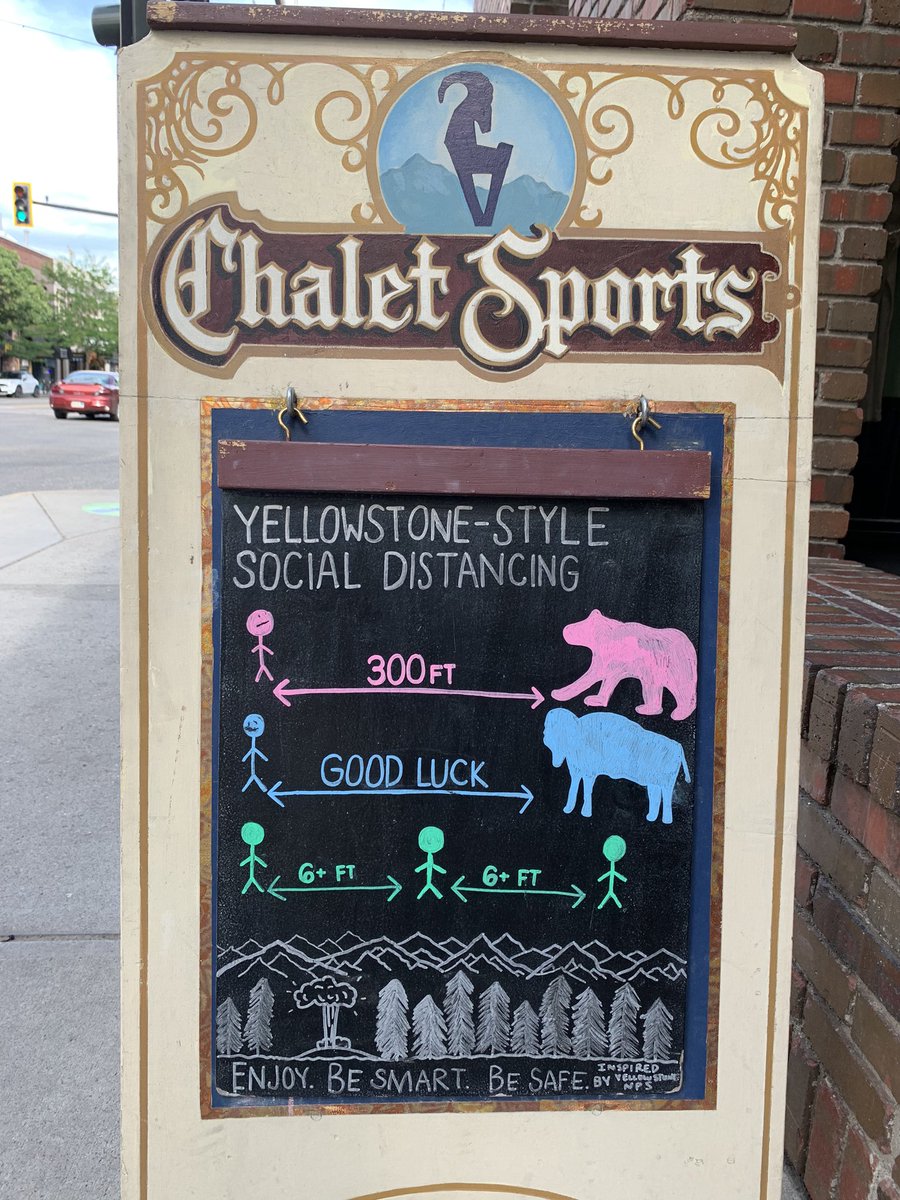 Chalet Sports
YELLOWSTONE-STYLE
SOCIAL DISTANCING
300 FT
GOOD LUCK
6+ FT 6+ FT
ENJOY. BE SMART. BE SAFE.
INSPIRED
BY YELLOWSTONE
NPS